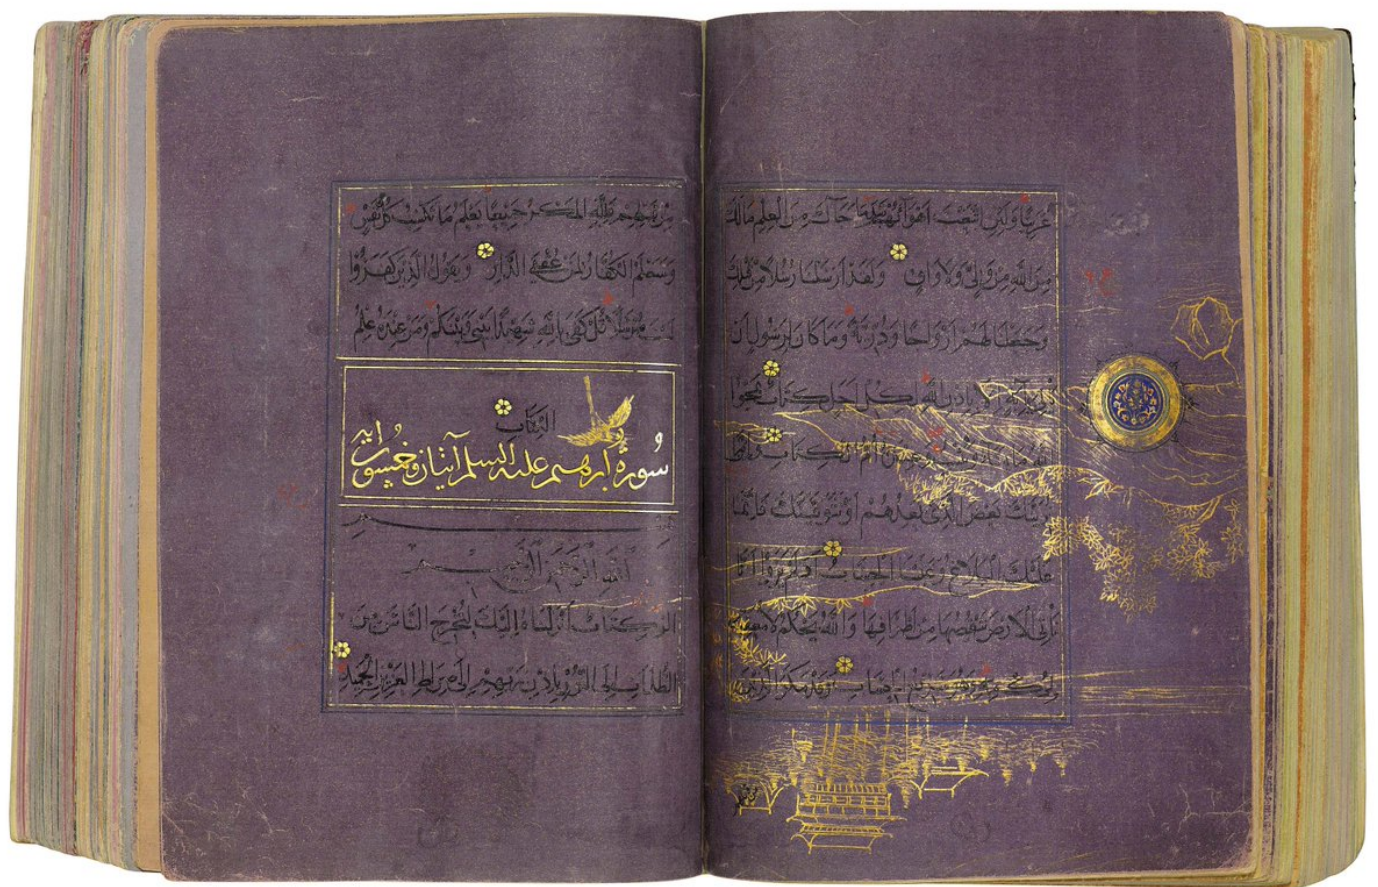 عَرَبِيًّا وَلَئِنِ اتَّبَعْتَ اَهْوَآءَهُمْ بَعْدَ مَا جَآءَكَ مِنَ الْعِلْمِ مَالَكَ
مِنَ اللهِ مِنْ وَلِيٍّ وَلَا وَاقٍ وَلَقَدْ اَرْسَلْنَا رُسُلًا مِنْ قَبْلِكَ
وَجَعَلْنَا لَهُمْ اَزْوَاجًا وَذُرِّيَّةً وَمَا كَانَ لِرَسُولٍ اَنْ
يَأْتِيَ بِآيَةٍ اِلَّا بِاِذْنِ اللهِ لِكُلِّ اَجَلٍ كِتَابٌ يَمْحُوا
اللهُ مَا يَشَآءُ وَيُثْبِتُ وَعِنْدَهُ اُمُّ الْكِتَابِ وَاِنْ مَا
نُرِيَنَّكَ بَعْضَ الَّذِي نَعِدُهُمْ اَوْ نَتَوَفَّيَنَّكَ فَاِنَّمَا
عَلَيْكَ الْبَلَاغُ وَعَلَيْنَا الْحِسَابُ اَوَلَمْ يَرَوْا اَنَّا
نَأْتِي الْاَرْضَ نَنْقُصُهَا مِنْ اَطْرَافِهَا وَاللهُ يَحْكُمُ لَا مُعَقِّبَ
لِحُكْمِهِ وَهُوَ سَرِيعُ الْحِسَابِ وَقَدْ مَكَرَ الَّذِينَ
مِنْ قَبْلِهِمْ فَلِلّٰهِ الْمَكْرُ جَمِيعًا يَعْلَمُ مَا تَكْسِبُ كُلُّ نَفْسٍ
وَسَيَعْلَمُ الْكُفَّارُ لِمَنْ عُقْبَى الدَّارِ وَيَقُولُ الَّذِينَ كَفَرُوا
لَسْتَ مُرْسَلًا قُلْ كَفَى بِاللهِ شَهِيدًا بَيْنِي وَبَيْنَكُمْ وَمَنْ عِنْدَهُ عِلْمُ
الْكِتَابِ
سُورَةُ ابرهيم عليه السلم اثنان وخمسون آية
بِسْمِ
اللهِ الرَّحْمٰنِ الرَّحِيمِ
الر كِتَابٌ اَنْزَلْنَاهُ اِلَيْكَ لِتُخْرِجَ النَّاسَ مِنَ
الظُّلُمَاتِ اِلَى النُّورِ بِاِذْنِ رَبِّهِمْ اِلَى صِرَاطِ الْعَزِيزِ الْحَمِيدِ